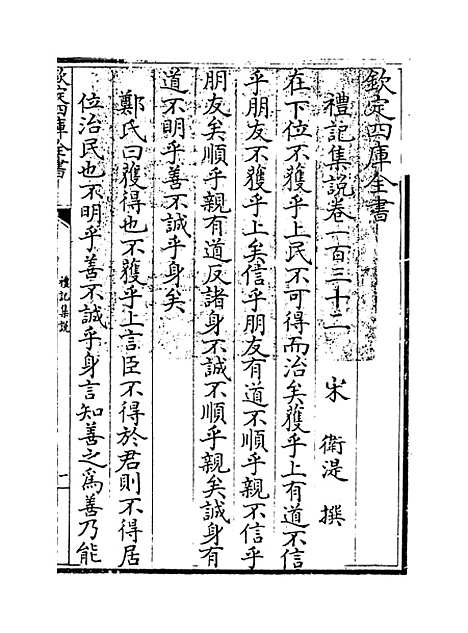 欽定四庫全書
禮記集說卷一百三十二
宋 衛湜 撰
在下位不獲乎上民不可得而治矣獲乎上有道不信
乎朋友不獲乎上矣信乎朋友有道不順乎親不信乎
朋友矣順乎親有道反諸身不誠不順乎親矣誠身有
道不明乎善不誠乎身矣
鄭氏曰獲得也不獲乎上言臣不得於君則不得居
位治民也不明乎善不誠乎身言知善之為善乃能
欽定四庫全書
禮記集說
一